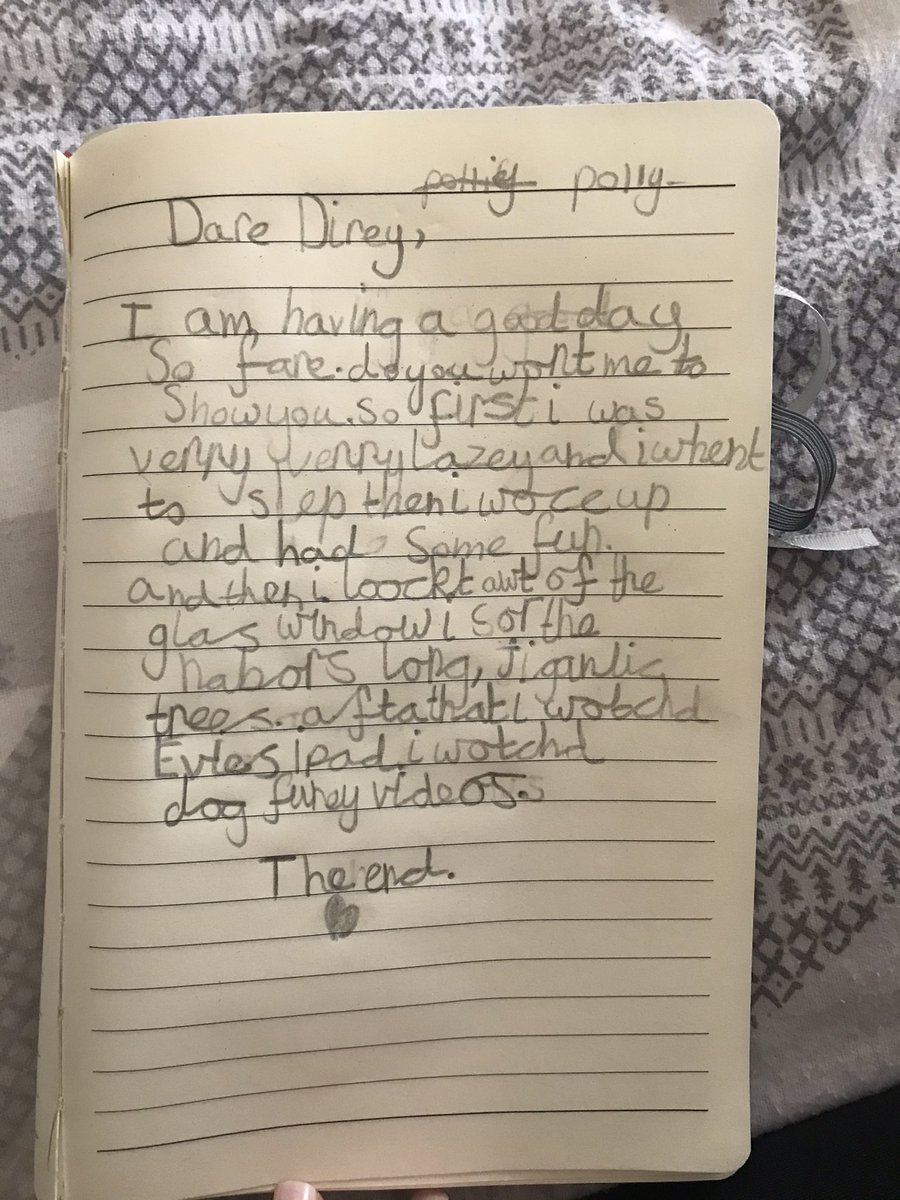 polly
Dare Direy,
I am having a good day
So fare. do you wont me to
Show you. so first i was
verry verry lazey and i whent
to slep then i woce up
and had some fun.
and then i loockt awt of the
glas window i sor the
nabors long, jigantic
trees. aftathat i wotchd
Evies ipad. i wotchd
dog funey videos.
The end.